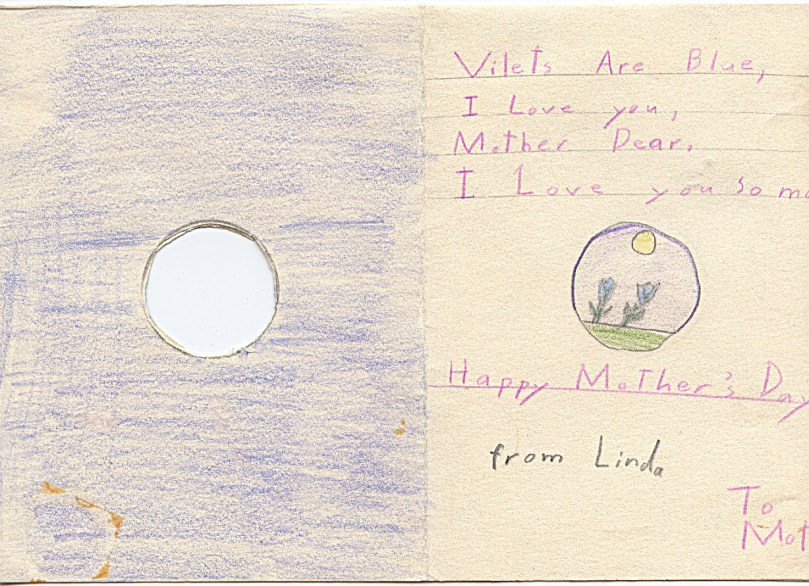 Vilets Are Blue,
I Love you,
Mother Dear.
I Love you so
Happy Mother's Day
from Linda
To